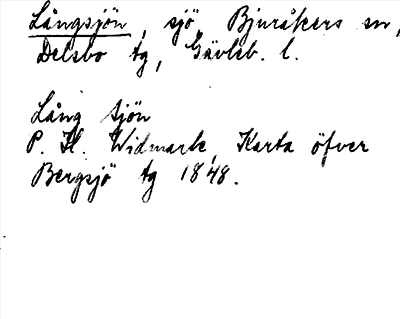 Långsjön, sjö, Bjuråkers sn,
Delsbo tg, Gävleb. l.
Lång Sjön
P. H. Widmark, Karta öfver
Bergsjö tg 1848.